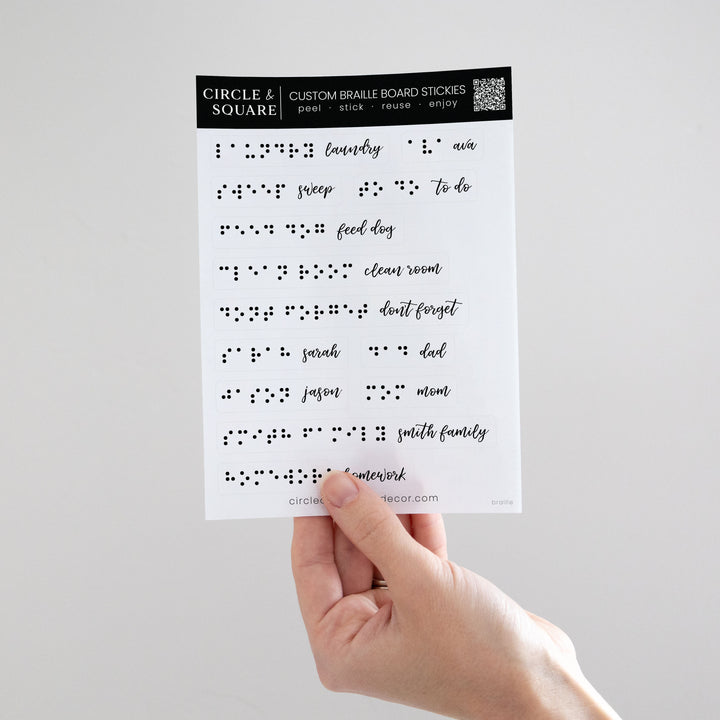 CIRCLE &
SQUARE
CUSTOM BRAILLE BOARD STICKIES
peel · stick · reuse · enjoy
⠇⠁⠥⠝⠙⠗⠽ laundry ⠁⠧⠁ ava
⠎⠺⠑⠑⠏ sweep ⠞⠕ ⠙⠕ to do
⠋⠑⠑⠙ ⠙⠕⠛ feed dog
⠉⠇⠑⠁⠝ ⠗⠕⠕⠍ clean room
⠙⠕⠝⠞ ⠋⠕⠗⠛⠑⠞ dont forget
⠎⠁⠗⠁⠓ sarah ⠙⠁⠙ dad
⠚⠁⠎⠕⠝ jason ⠍⠕⠍ mom
⠎⠍⠊⠞⠓ ⠋⠁⠍⠊⠇⠽ smith family
homework
braille